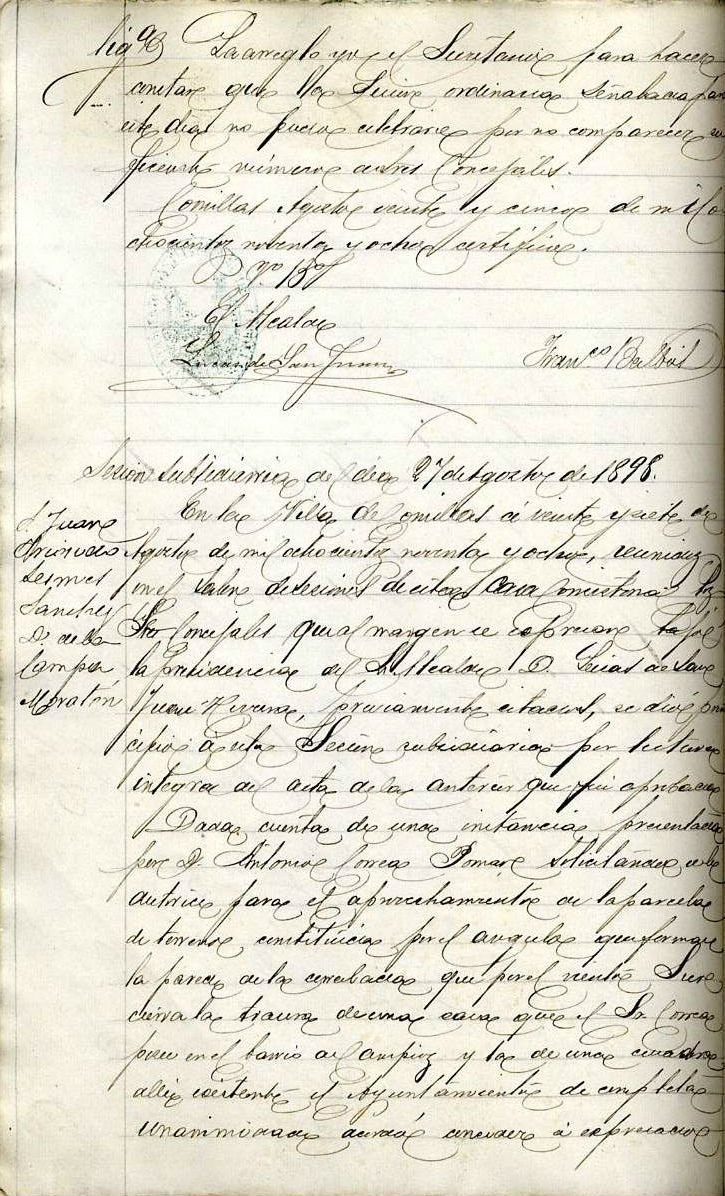 La arreglo yo el Secretario para hacer
constar que la Sesion ordinaria señalada para
este dia no pudo celebrarse por no comparecer su
ficiente número de Sres Concejales.
Comillas Agosto veinte y cinco de mil o
chocientos noventa y ocho certifico.
Vº Bº
El Alcalde
Lucas de San Juan
Franco
Sesion subsidiaria del dia 27 de Agosto de 1898.
En la Villa de Comillas á veinte y siete de
Agosto de mil ochocientos noventa y ocho, reunidos
en el Salon de sesiones de esta Casa Consistorial los
Sres Concejales que al margen se expresan bajo
la Presidencia del Sr. Alcalde D. Lucas de San
Juan Rivero, previamente citados, se dió prin
cipio á esta Sesión subsidiaria por lectura
integra del acta de la anterior que fué aprobada
Dada cuenta de una instancia presentada
por D. Antonio Correa Pomar solicitando se le
autorice para el aprovechamiento de la parcela
de terreno constituida por el angulo que forma
la pared de la que por el viento Sur
cierra la trasera de una casa que el Sr. Correa
posee en el barrio del Campíos y la de una cuadra
alli existente el Ayuntamiento de completa
unanimidad acordó conceder á expresado
Sr. Juan
Sanchez
D. de la
Campa
Moraton